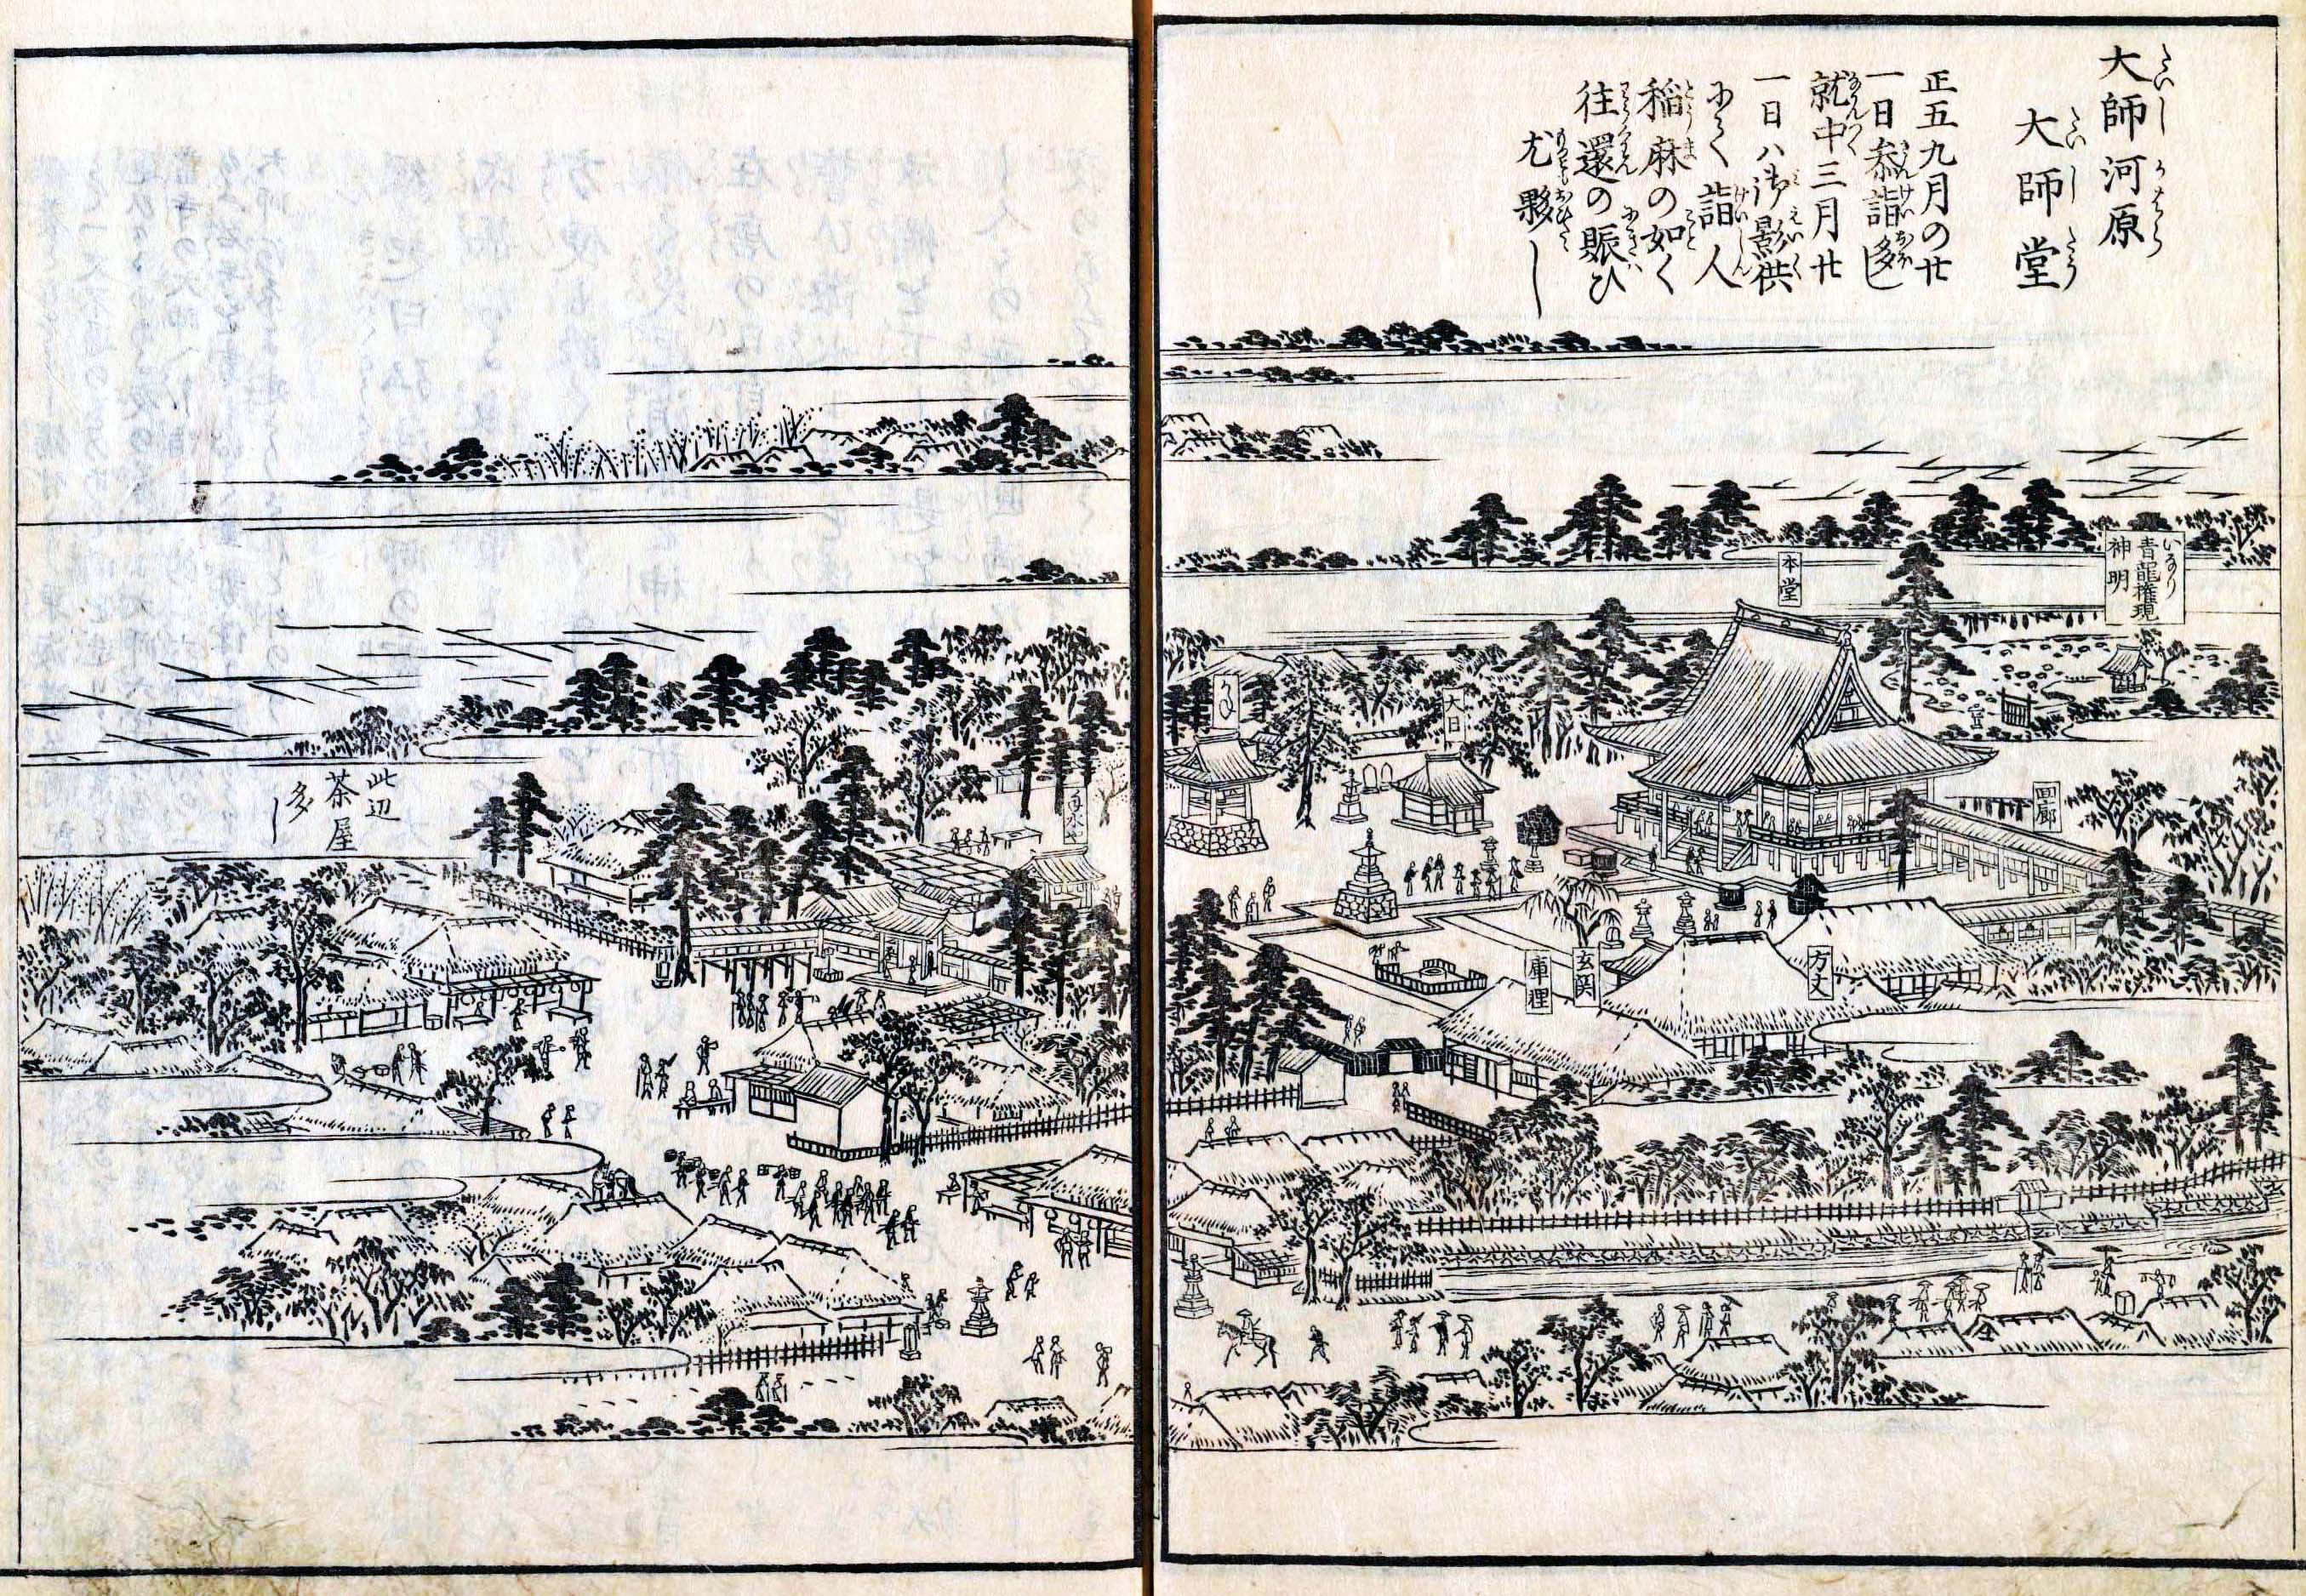 大師河原
大師堂
正五九月の廿
一日参詣多し
就中三月廿
一日ハ御影供
にて詣人
稲麻の如く
往還の賑ひ
尤夥し
いなり
青龍権現
神明
本堂
回廊
大日
かね
方丈
玄関
庫裡
此辺
茶屋
多し